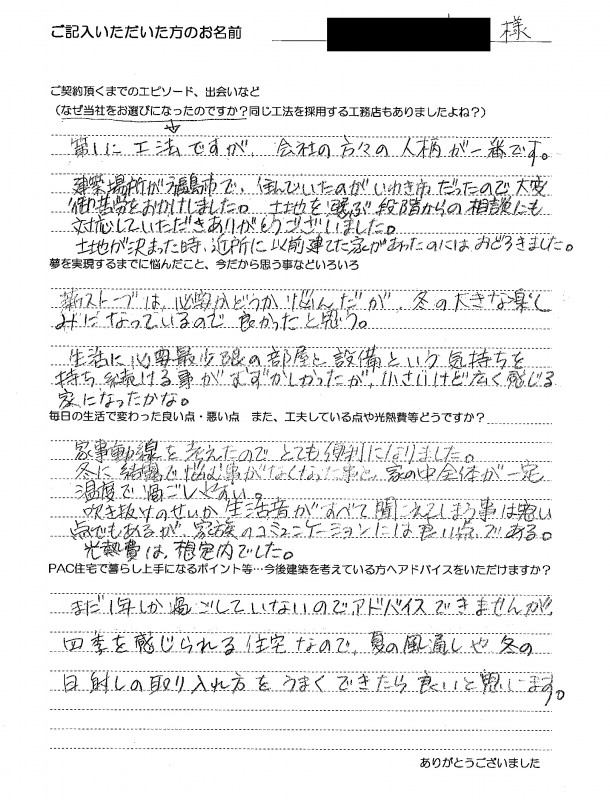 ご記入いただいた方のお名前
様
ご契約頂くまでのエピソード、出会いなど
(なぜ当社をお選びになったのですか?同じ工法を採用する工務店もありましたよね?)
第1に工法ですが、会社の方々の人柄が一番です。
建築場所が福島市で、住んでいたのがいわき市だったので大変
御苦労をおかけしました。土地を選ぶ段階からの相談にも
対応していただきありがとうございました。
土地が決まった時、近所に以前建てた家があったのにはおどろきました。
夢を実現するまでに悩んだこと、今だから思う事などいろいろ
薪ストーブは、必要かどうか悩んだが、冬の大きな楽し
みになっているので良かったと思う。
生活に必要最少限の部屋と設備という気持ちを
持ち続ける事がむずかしかったが、小さいけど広く感じる
家になったかな。
毎日の生活で変わった良い点・悪い点 また、工夫している点や光熱費等どうですか?
家事動線を考えたのでとても便利になりました。
冬に結露で悩む事がなくなった事と、家の中全体が一定
温度で過ごしやすい。
吹き抜けのせいか生活音がすべて聞こえてしまう事は悪い
点でもあるが、家族のコミュニケーションには良い点である。
光熱費は、想定内でした。
PAC住宅で暮らし上手になるポイント等…今後建築を考えている方へアドバイスをいただけますか?
まだ1年しか過ごしていないのでアドバイスできませんが、
四季を感じられる住宅なので、夏の風通しや冬の
日射しの取り入れ方をうまくできたら良いと思います。
ありがとうございました